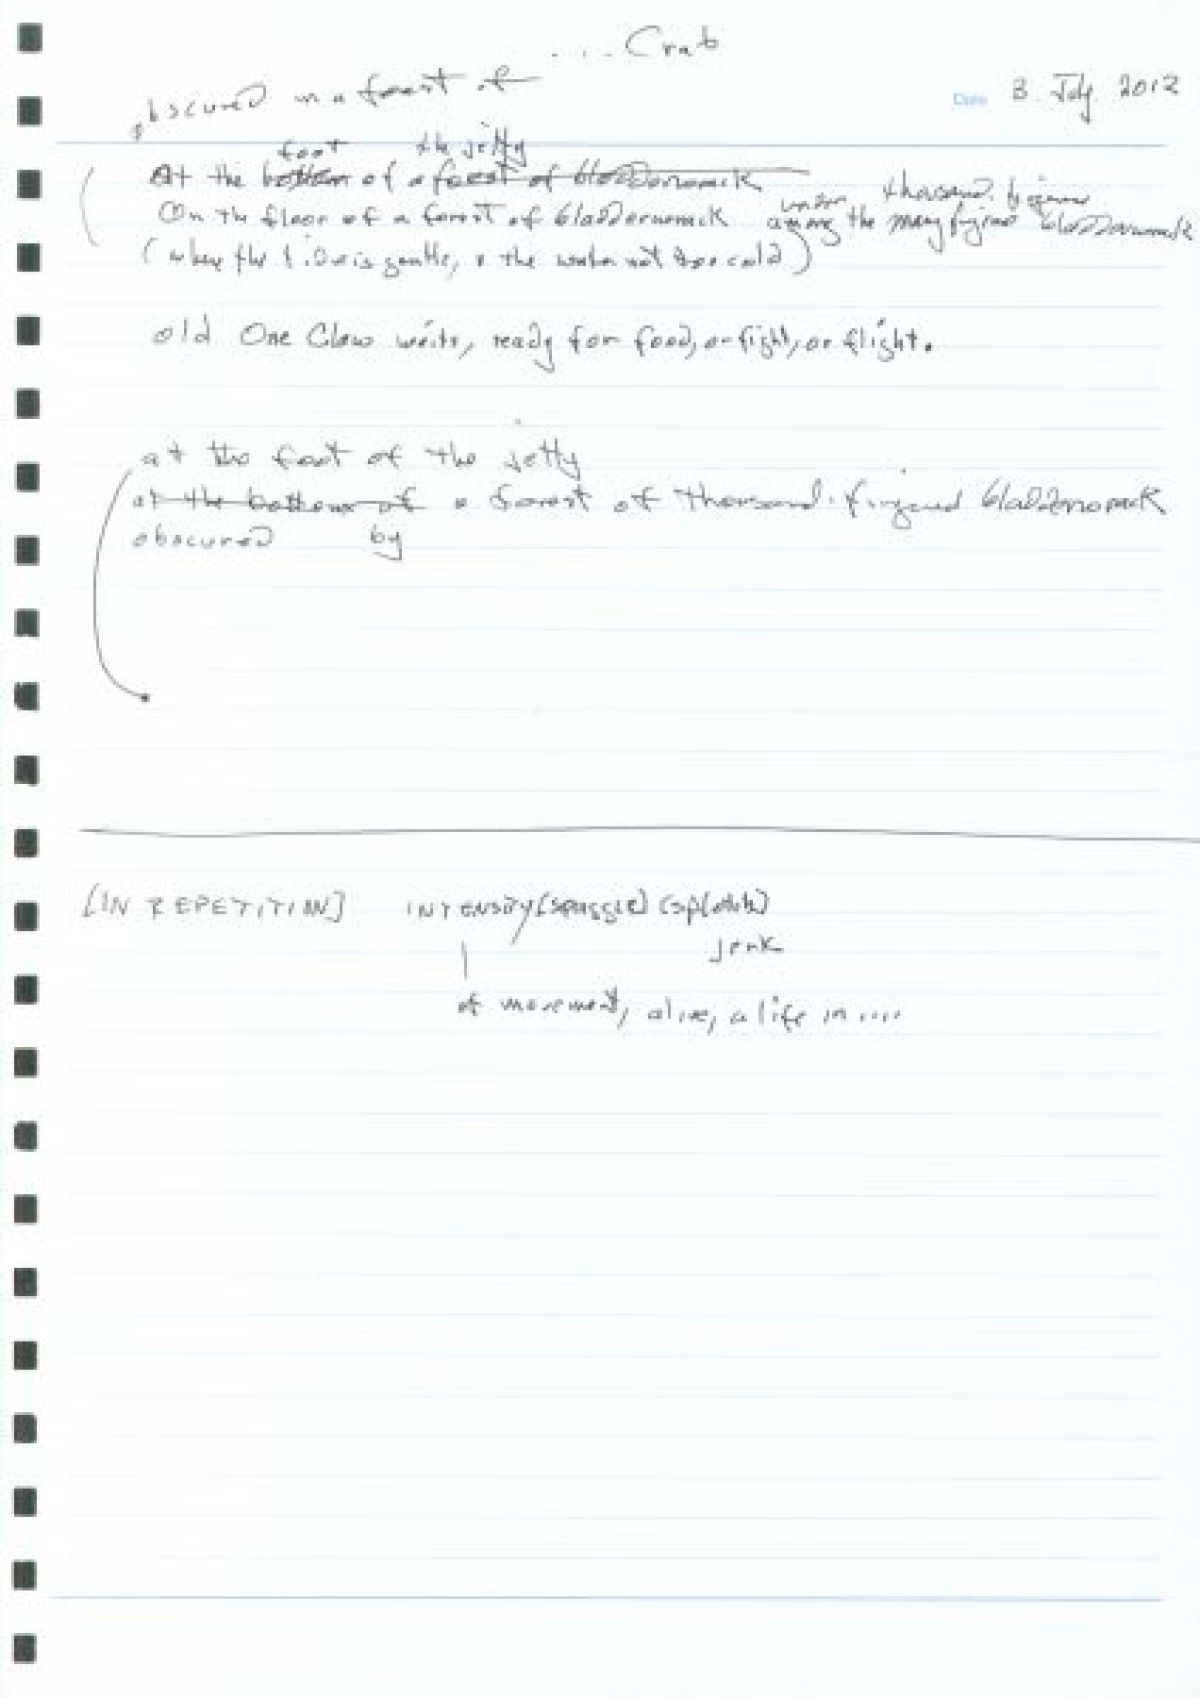 ... Crab
obscured in a forest of
Date 3. July. 2012
foot the jetty
At the bottom of a forest of bladderwrack
under thousand-fingered
On the floor of a forest of bladderwrack among the many fingered bladderwrack
(where the tide is gentle, & the water not too cold)
old One Claw waits, ready for food, or fight, or flight.
at the foot of the jetty
at the bottom of a forest of thousand-fingered bladderwrack
obscured by
[IN REPETITION] INTENSITY [struggle]
jerk
of movement, alive, a life in ....